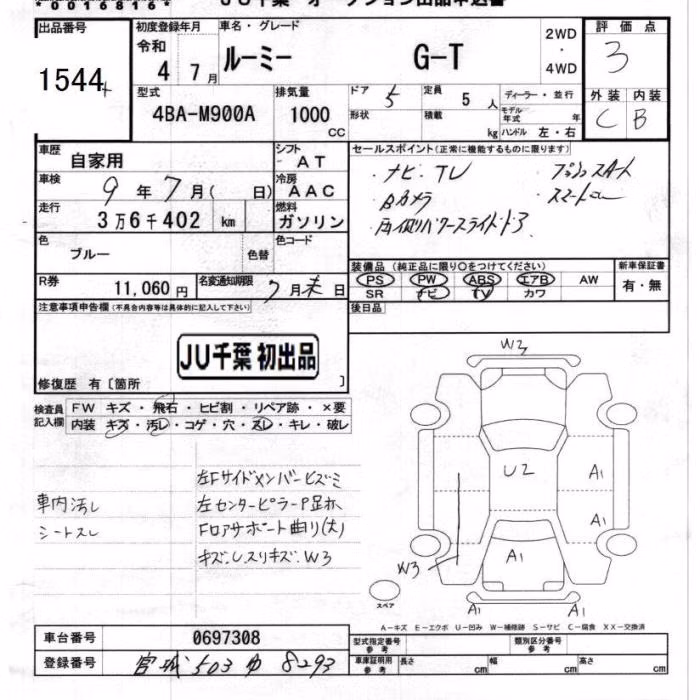 *00168168*
JU千葉 オークション出品申込書
出品番号
1544
初度登録年月
令和 4 7月
車名・グレード
ルーミー G-T
2WD
・
4WD
評価点
3
型式
4BA-M900A
排気量
1000 CC
ドア 5
定員 5 人
形状
積載 kg
ディーラー・並行
モデル年式 年
ハンドル 左・右
外装 内装
C B
車歴
自家用
シフト
AT
車検 9年7月( 日)
冷房
AAC
走行
3万6千402 km
燃料
ガソリン
色
ブルー
色替
色コード
R券
11,060 円
名変通知期限
7月末日
セールスポイント(正常に機能するものに限ります)
・ナビ・TV
・プッシュスタート
・Bカメラ
・スマートキー
・両側パワースライドドア
装備品(純正品に限り○をつけてください)
PS PW ABS エアB AW
SR ナビ TV カワ
新車保証書
有・無
後日品
注意事項申告欄(不具合内容等は具体的に記入して下さい)
JU千葉 初出品
修復歴 有〔箇所 〕
検査員記入欄
FW キズ・飛石・ヒビ割・リペア跡・×要
内装 キズ・汚レ・コゲ・穴・スレ・キレ・破レ
車内汚レ
シートスレ
左Fサイドメンバーヒズミ
左センターピラーP足
Fロアサポート曲り(大)
キズ、スリキズ、W3
W3
U2
A1
A1
A1
W3
A1
A1
スペア
A-キズ E-エクボ U-凹み W-補修跡 S-サビ C-腐食 XX-交換済
車台番号
0697308
登録番号
宮城 503 8293
型式指定番号
参考
類別区分番号
参考
車庫証明用
参考
長さ cm
幅 cm
高さ cm